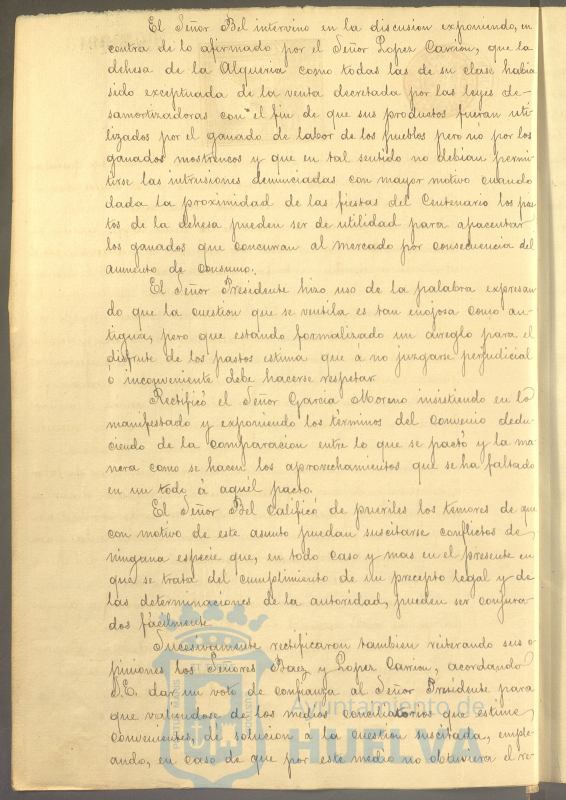 El Señor Bel intervino en la discusion exponiendo, en
contra de lo afirmado por el Señor Lopez Carrion, que la
dehesa de la Alqueria como todas las de su clase habia
sido exceptuada de la venta decretada por las leyes de-
samortizadoras con el fin de que sus productos fueran uti-
lizados por el ganado de labor de los pueblos pero nó por los
ganados mostrencos y que en tal sentido no debian permi-
tirse las intrusiones denunciadas con mayor motivo cuando
dada la proximidad de las fiestas del Centenario los pas-
tos de la dehesa pueden ser de utilidad para apacentar
los ganados que concurran al mercado por consecuencia del
aumento de consumo.
El Señor Presidente hizo uso de la palabra expresan-
do que la cuestion que se ventila es tan enojosa como an-
tigua, pero que estando formalizado un arreglo para el
disfrute de los pastos estima que á no juzgarse perjudicial
ó inconveniente debe hacerse respetar.
Rectificó el Señor Garcia Moreno insistiendo en lo
manifestado y exponiendo los términos del convenio dedu-
ciendo de la comparacion entre lo que se pactó y la ma-
nera como se hacen los aprovechamientos que se ha faltado
en un todo á aquél pacto.
El Señor Bel calificó de pueriles los temores de que
con motivo de este asunto puedan suscitarse conflictos de
ninguna especie que, en todo caso y mas en el presente en
que se trata del cumplimiento de un precepto legal y de
las determinaciones de la autoridad, pueden ser conjura-
dos fácilmente
Sucesivamente rectificaron tambien reiterando sus o-
piniones los Señores Baez y Lopez Carrion, acordando
S.E. dar un voto de confianza al Señor Presidente para
que valiendose de los medios conciliatorios que estime
convenientes, dé solucion á la cuestion suscitada, emple-
ando, en caso de que por este medio no obtuviera el re-
Ayuntamiento de
HUELVA